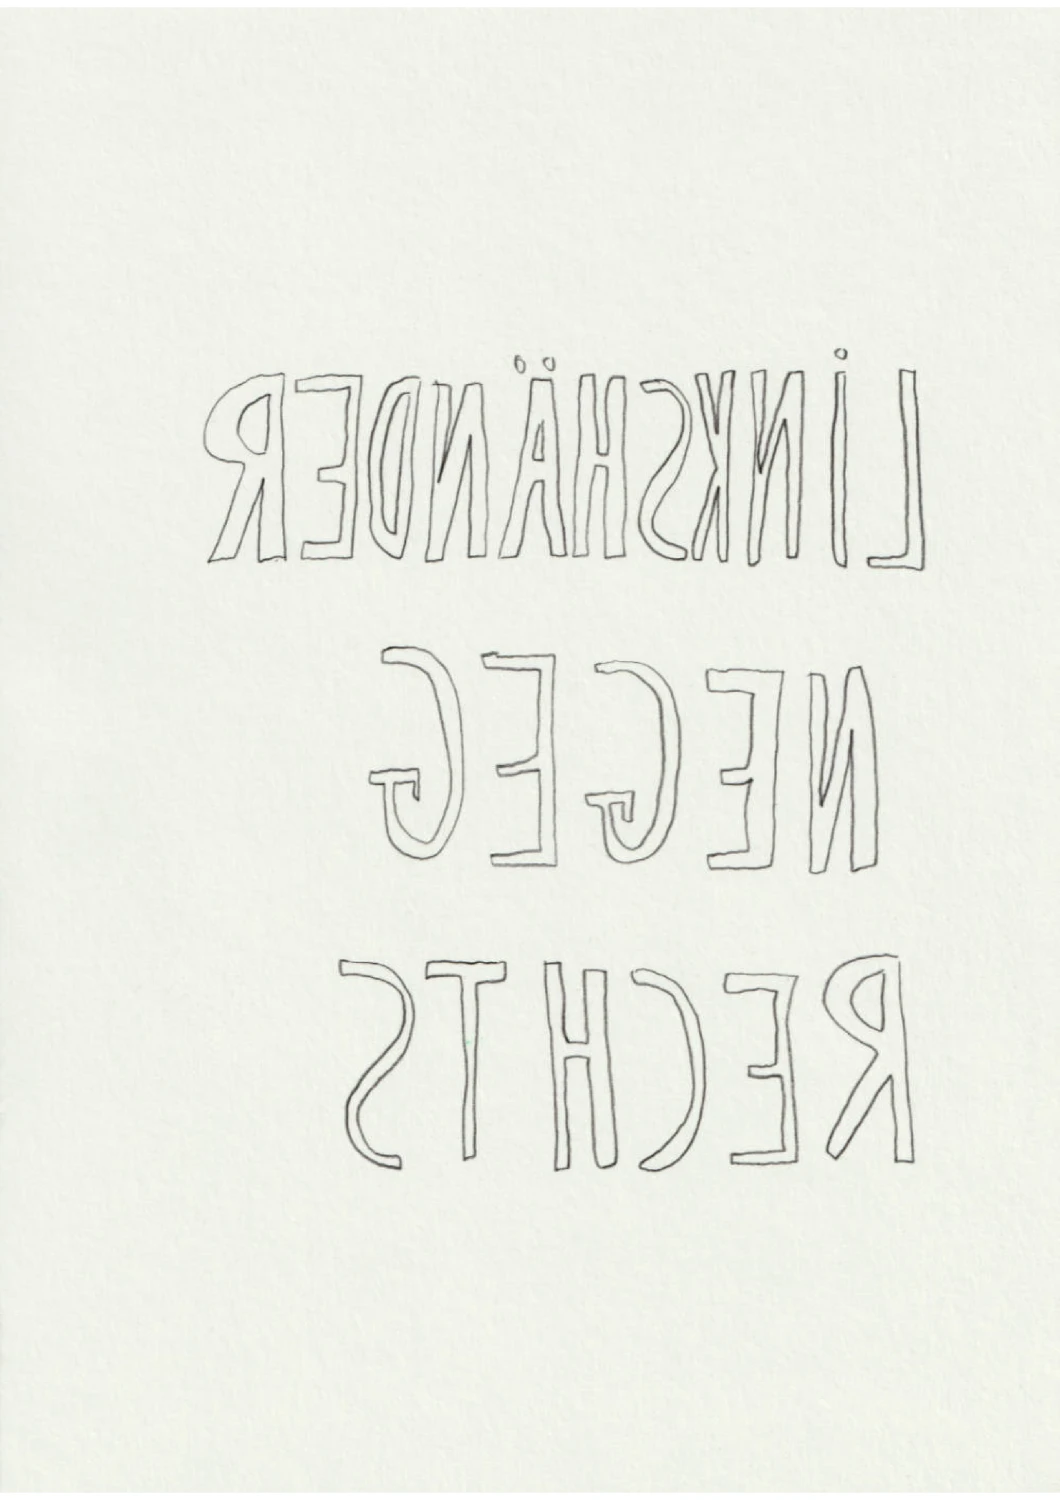 LiNKSHÄNDER
NEGEG
RECHTS